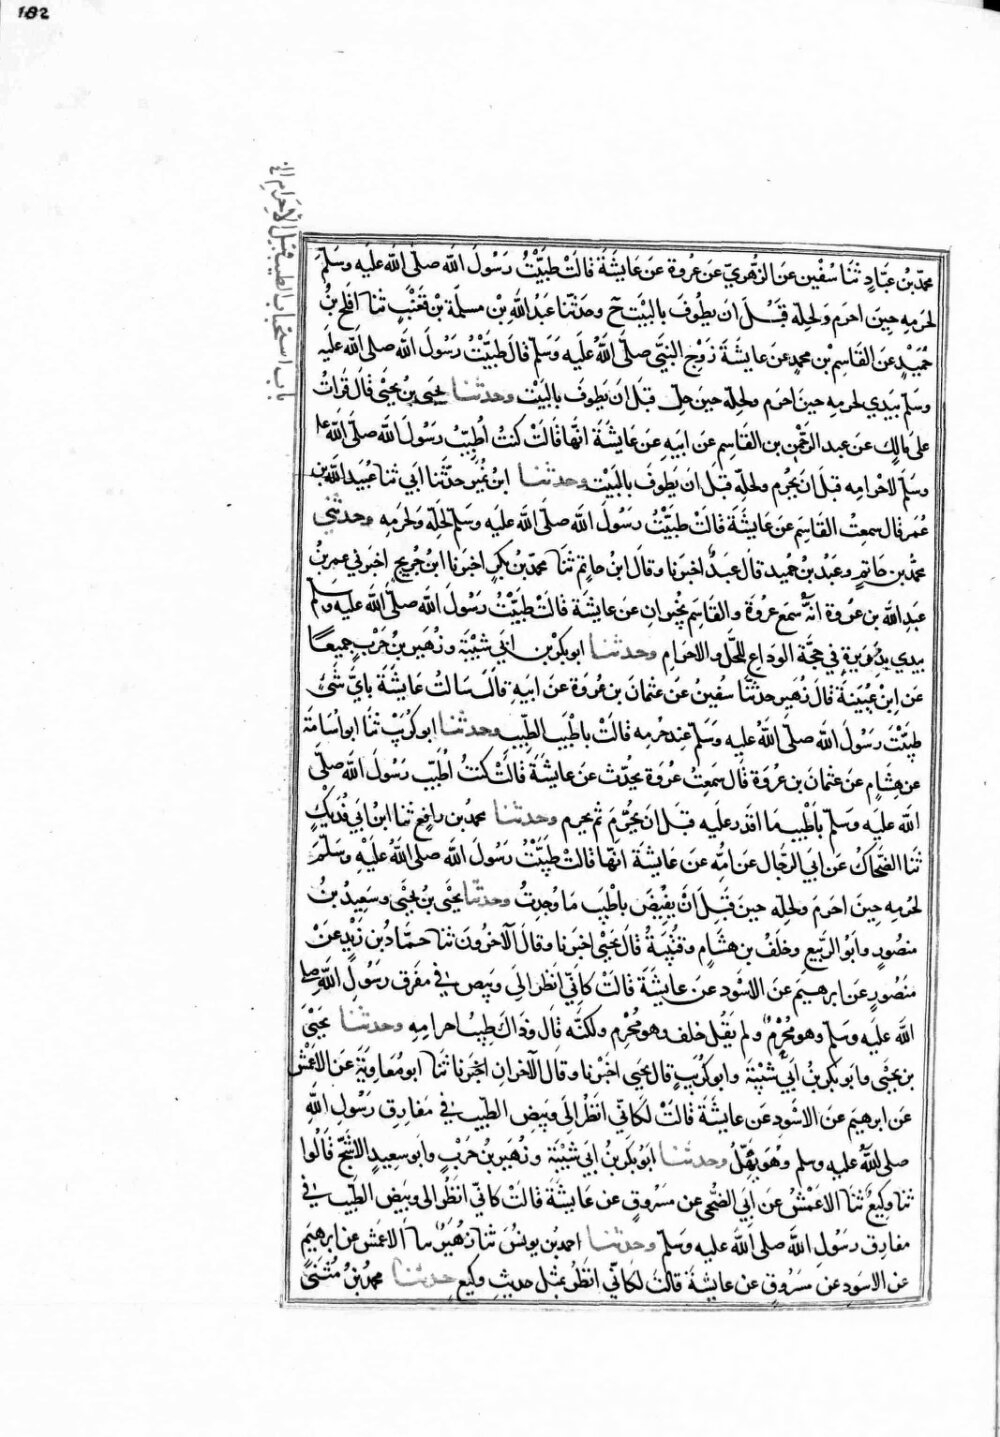 182
باب استحباب الطيب قبل الاحرام الخ
محمد بن عباد ثنا سفين عن الزهري عن عروة عن عايشة قالت طيبت رسول الله صلى الله عليه وسلم
لحرمه حين احرم ولحله قبل ان يطوف بالبيت ح وحدثنا عبد الله بن مسلمة بن قعنب ثنا افلح بن
حميد عن القاسم بن محمد عن عايشة زوج النبي صلى الله عليه وسلم قال طيبت رسول الله صلى الله عليه
وسلم بيدي لحرمه حين احرم ولحله حين حل قبل ان يطوف بالبيت وحدثنا يحيى بن يحيى قال قرات
على مالك عن عبد الرحمن بن القاسم عن ابيه عن عايشة انها قالت كنت اطيب رسول الله صلى الله
وسلم لاحرامه قبل ان يحرم ولحله قبل ان يطوف بالبيت وحدثنا ابن نمير حدثنا ابي ثنا عبيد الله بن
عمر قال سمعت القاسم عن عايشة قالت طيبت رسول الله صلى الله عليه وسلم لحله ولحرمه وحدثني
محمد بن حاتم وعبد بن حميد قال عبد اخبرنا وقال ابن حاتم ثنا محمد بن بكر اخبرنا ابن جريج اخبرني عمر بن
عبد الله بن عروة انه سمع عروة والقاسم يخبران عن عايشة قالت طيبت رسول الله صلى الله عليه وسلم
بيدي بذريرة في حجة الوداع للحل والاحرام وحدثنا ابو بكر بن ابي شيبة وزهير بن حرب جميعا
عن ابن عيينة قال زهير حدثنا سفين عن عثمان بن عروة عن ابيه قال سالت عايشة باي شئ
طيبت رسول الله صلى الله عليه وسلم عند حرمه قالت باطيب الطيب وحدثنا ابو كريب ثنا ابو اسامة
عن هشام عن عثمان بن عروة قال سمعت عروة يحدث عن عايشة قالت كنت اطيب رسول الله صلى
الله عليه وسلم باطيب ما اقدر عليه قبل ان يحرم ثم يحرم وحدثنا محمد بن رافع ثنا ابن ابي فديك
ثنا الضحاك عن ابي الرجال عن امه عن عايشة انها قالت طيبت رسول الله صلى الله عليه وسلم
لحرمه حين احرم ولحله حين قبل ان يفيض باطيب ما وجدت وحدثنا يحيى بن يحيى وسعيد بن
منصور وابو الربيع وخلف بن هشام وقتيبة قال يحيى اخبرنا وقال الآخرون ثنا حماد بن زيد عن
منصور عن ابرهيم عن الاسود عن عايشة قالت كاني انظر الى وبيص في مفرق رسول الله صلى
الله عليه وسلم وهو محرم ولم يقل خلف وهو محرم ولكنه قال وذاك طيب احرامه وحدثنا يحيى
بن يحيى وابو بكر بن ابي شيبة وابو كريب قال يحيى اخبرنا وقال الآخران ثنا ابو معاوية عن الاعمش
عن ابرهيم عن الاسود عن عايشة قالت لكاني انظر الى وبيض الطيب في مفارق رسول الله
صلى الله عليه وسلم وهو يهل وحدثنا ابو بكر بن ابي شيبة وزهير بن حرب وابو سعيد الاشج قالوا
ثنا وكيع ثنا الاعمش عن ابي الضحى عن مسروق عن عايشة قالت كاني انظر الى وبيض الطيب في
مفارق رسول الله صلى الله عليه وسلم وحدثنا احمد بن يونس ثنا زهير ثنا الاعمش عن ابرهيم
عن الاسود عن مسروق عن عايشة قالت لكاني انظر بمثل حديث وكيع حدثنا محمد بن مثنى